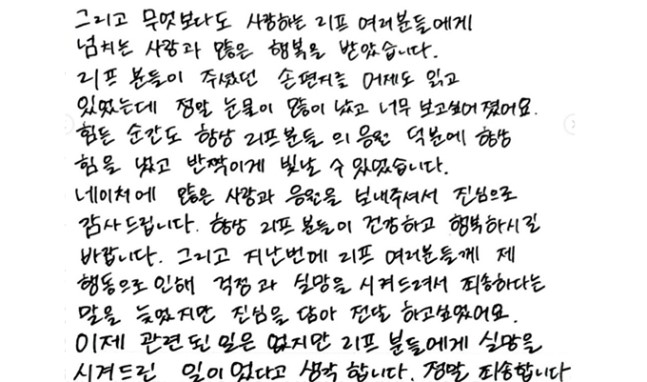 그리고 무엇보다도 사랑하는 리프 여러분들에게
넘치는 사랑과 많은 행복을 받았습니다.
리프 분들이 주셨던 손편지를 어제도 읽고
있었는데 정말 눈물이 많이 났고 너무 보고싶어졌어요.
힘든 순간도 항상 리프분들의 응원 덕분에 항상
힘을 냈고 반짝이게 빛날 수 있었습니다.
네이처에 많은 사랑과 응원을 보내주셔서 진심으로
감사드립니다. 항상 리프 분들이 건강하고 행복하시길
바랍니다. 그리고 지난번에 리프 여러분들께 제
행동으로 인해 걱정과 실망을 시켜드려서 죄송하다는
말을 늦었지만 진심을 담아 전달 하고싶었어요.
이제 관련된 일은 없지만 리프 분들에게 실망을
시켜드린 일이 었다고 생각 합니다. 정말 죄송합니다